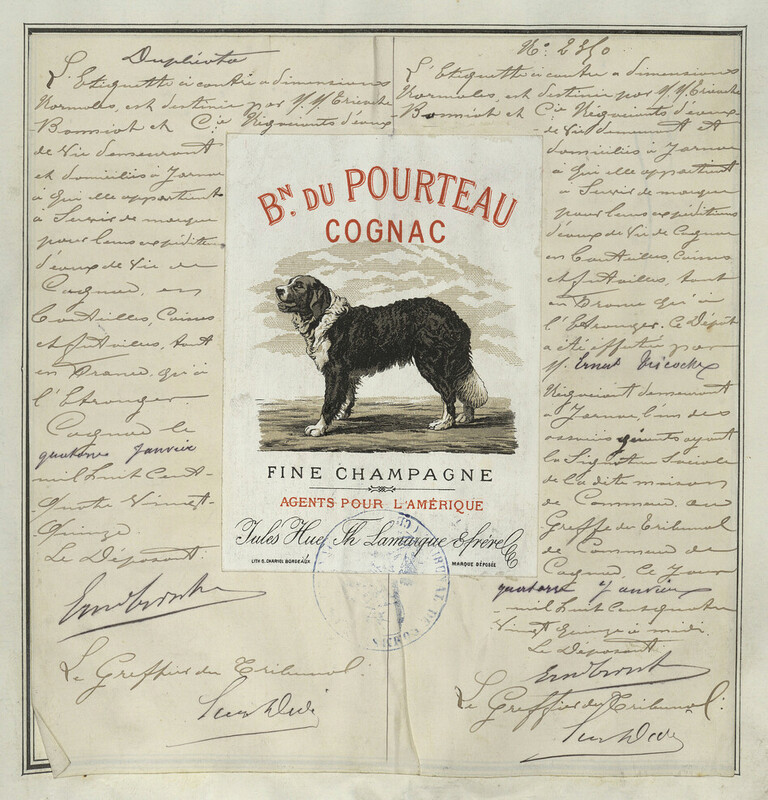 Duplicata
L'Etiquette ci contre a dimensions
Normales, est destinée par M M Tricoche
Bonniot et Cie Négociants d'eaux
de Vie demeurant
et domiciliés à Jarnac
à qui elle appartient
à Servir de marque
pour leurs expéditions
d'eaux de Vie de
Cognac, en
Bouteilles, Caisses
et futailles, tant
en France, qu'à
l'Etranger.
Cognac le
quatorze Janvier
mil huit Cent
Quatre Vingt
Quinze
Le Déposant
Le Greffier du Tribunal:
BN. DU POURTEAU
COGNAC
FINE CHAMPAGNE
AGENTS POUR L'AMÉRIQUE
Jules Hue, Th Lamarque & frère Cie
LITH. G. CHARIOL BORDEAUX
MARQUE DÉPOSÉE
TRIBUNAL DE
No 2350
L'Etiquette ci contre a dimensions
Normales, est destinée par M M Tricoche
Bonniot et Cie Négociants d'eaux
de Vie demeurant et
domiciliés à Jarnac
à qui elle appartient
à Servir de marque
pour leurs expéditions
d'eaux de Vie de Cognac
en Bouteilles, Caisses
et futailles, tant
en France qu'à
l'Etranger. Ce Dépôt
a été effectué par
M. Ernest Tricoche
Négociant demeurant
à Jarnac, l'un des
associés gérants ayant
la Signature Sociale
de la dite maison
de Commerce, au
Greffe du Tribunal
de Commerce de
Cognac, Ce Jour
quatorze Janvier
mil huit Cent quatre
Vingt Quinze à midi.
Le Déposant
Le Greffier du Tribunal: